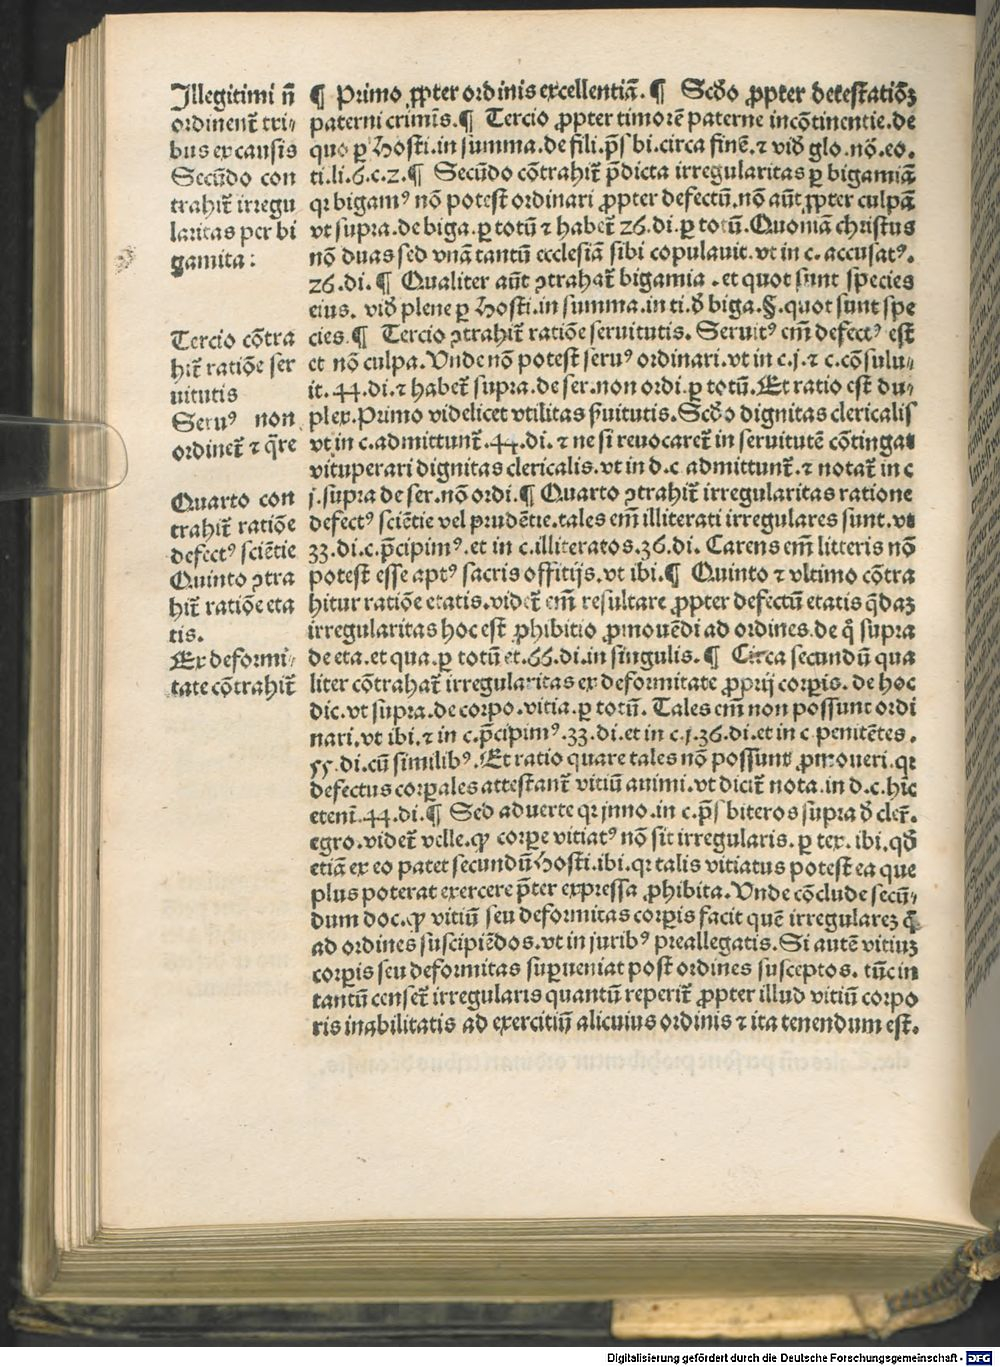 Illegitimi nō
ordinent᷑ tri⸗
bus ex causis
Secūdo con
trahit᷑ irregu
laritas per bi
gamita:
Tercio cōtra
hit᷑ ratiōe ser
uitutis
Seruꝰ non
ordinet᷑ ⁊ q̄re
Quarto con
trahit᷑ ratiōe
defectꝰ sciētie
Quinto ↄtra
hit᷑ ratiōe eta
tis.
Ex deformi⸗
tate cōtrahit᷑
¶ Primo ꝓpter ordinis excellentiā. ¶ Scd̄o ꝓpter detestatiōꝫ
paterni criminis. ¶ Tercio ꝓpter timorē paterne incōtinentie. de
quo ꝑ Hosti. in summa. de fili. p̄sbi. circa finē. ⁊ vid̄ glo. nō. eo.
ti. li. 6. c. 2. ¶ Secūdo cōtrahit᷑ p̄dicta irregularitas ꝑ bigamiā
qꝛ bigamꝰ nō potest ordinari ꝓpter defectū. nō aūt ꝓpter culpā
vt supra. de biga. ꝑ totū ⁊ habet᷑ 26. di. ꝑ totū. Quoniā christus
nō duas sed vnā tantū ecclesiā sibi copulauit. vt in c. accusatꝰ.
26. di. ¶ Qualiter aūt ↄtrahat᷑ bigamia. et quot sunt species
eius. vid̄ plene ꝑ Hosti. in summa. in ti. d̄ biga. §. quot sunt spe
cies. ¶ Tercio ↄtrahit᷑ ratiōe seruitutis. Seruitꝰ em̄ defectꝰ est
et nō culpa. Vnde nō potest seruꝰ ordinari. vt in c. j. ⁊ c. cōsulu⸗
it. 44. di. ⁊ habet᷑ supra. de ser. non ordi. ꝑ totū. Et ratio est du⸗
plex. Primo videlicet vtilitas s̄uitutis. Scd̄o dignitas clericalis
vt in c. admittunt᷑. 44. di. ⁊ ne si reuocaret᷑ in seruitutē cōtingat
vituperari dignitas clericalis. vt in d. c. admittunt᷑. ⁊ notat᷑ in c
j. supra de ser. nō ordi. ¶ Quarto ↄtrahit᷑ irregularitas ratione
defectꝰ sciētie vel prudētie. tales em̄ illiterati irregulares sunt. vt
33. di. c. p̄cipimꝰ. et in c. illiteratos. 36. di. Carens em̄ litteris nō
potest esse aptꝰ sacris offitijs. vt ibi. ¶ Quinto ⁊ vltimo cōtra
hitur ratiōe etatis. videt᷑ em̄ resultare ꝓpter defectū etatis q̄daꝫ
irregularitas hoc est ꝓhibitio ꝓmouēdi ad ordines. de q̊ supra
de eta. et qua. ꝑ totū et. 66. di. in singulis. ¶ Circa secundū qua
liter cōtrahat᷑ irregularitas ex deformitate ꝓprij corꝑis. de hoc
dic. vt supra. de corpo. vitia. ꝑ totū. Tales em̄ non possunt ordi
nari. vt ibi. ⁊ in c. p̄cipimꝰ. 33. di. et in c. j. 36. di. et in c penitētes.
55. di. cū similibꝰ. Et ratio quare tales nō possunt ꝓmoueri. qꝛ
defectus corꝑales attestant᷑ vitiū animi. vt dicit᷑ nota. in d. c. hīc
etenī. 44. di. ¶ Sed aduerte qꝛ jnno. in c. p̄sbiteros supra d̄ cler̄.
egro. videt᷑ velle. ꝙ corꝑe vitiatꝰ nō sit irregularis. ꝑ tex. ibi. qd̄
etiā ex eo patet secundū Hosti. ibi. qꝛ talis vitiatus potest ea que
plus poterat exercere p̄ter expressa ꝓhibita. Vnde cōclude secū⸗
dum doc. ꝙ vitiū seu deformitas corꝑis facit quē irregulareꝫ q̊
ad ordines suscipiēdos. vt in juribꝰ preallegatis. Si autē vitiuꝫ
corꝑis seu deformitas suꝑueniat post ordines susceptos. tūc in
tantū censet᷑ irregularis quantū reperit᷑ ꝓpter illud vitiū corpo
ris inabilitatis ad exercitiū alicuius ordinis ⁊ ita tenendum est.
Digitalisierung gefördert durch die Deutsche Forschungsgemeinschaft - DFG